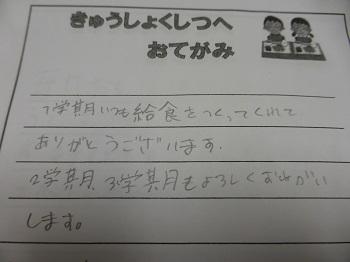 きゅうしょくしつへ
おてがみ
1学期いつも給食をつくってくれて
ありがとうございます.
2学期、3学期もよろしくおねがい
します。